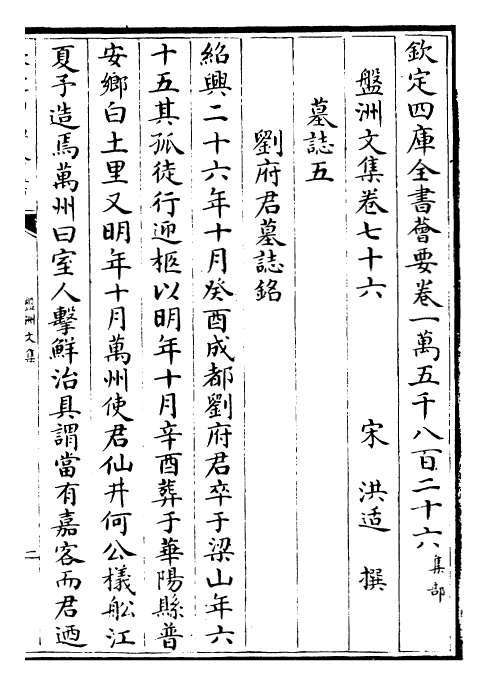 欽定四庫全書薈要卷一萬五千八百二十六集部
盤洲文集卷七十六　宋　洪适　撰
墓誌五
劉府君墓誌銘
紹興二十六年十月癸酉成都劉府君卒于梁山年六
十五其孤徒行迎柩以明年十月辛酉葬于華陽縣普
安鄉白土里又明年十月萬州使君仙井何公檥舩江
夏予造焉萬州曰室人擊鮮治具謂當有嘉客而君迺
盤洲文集